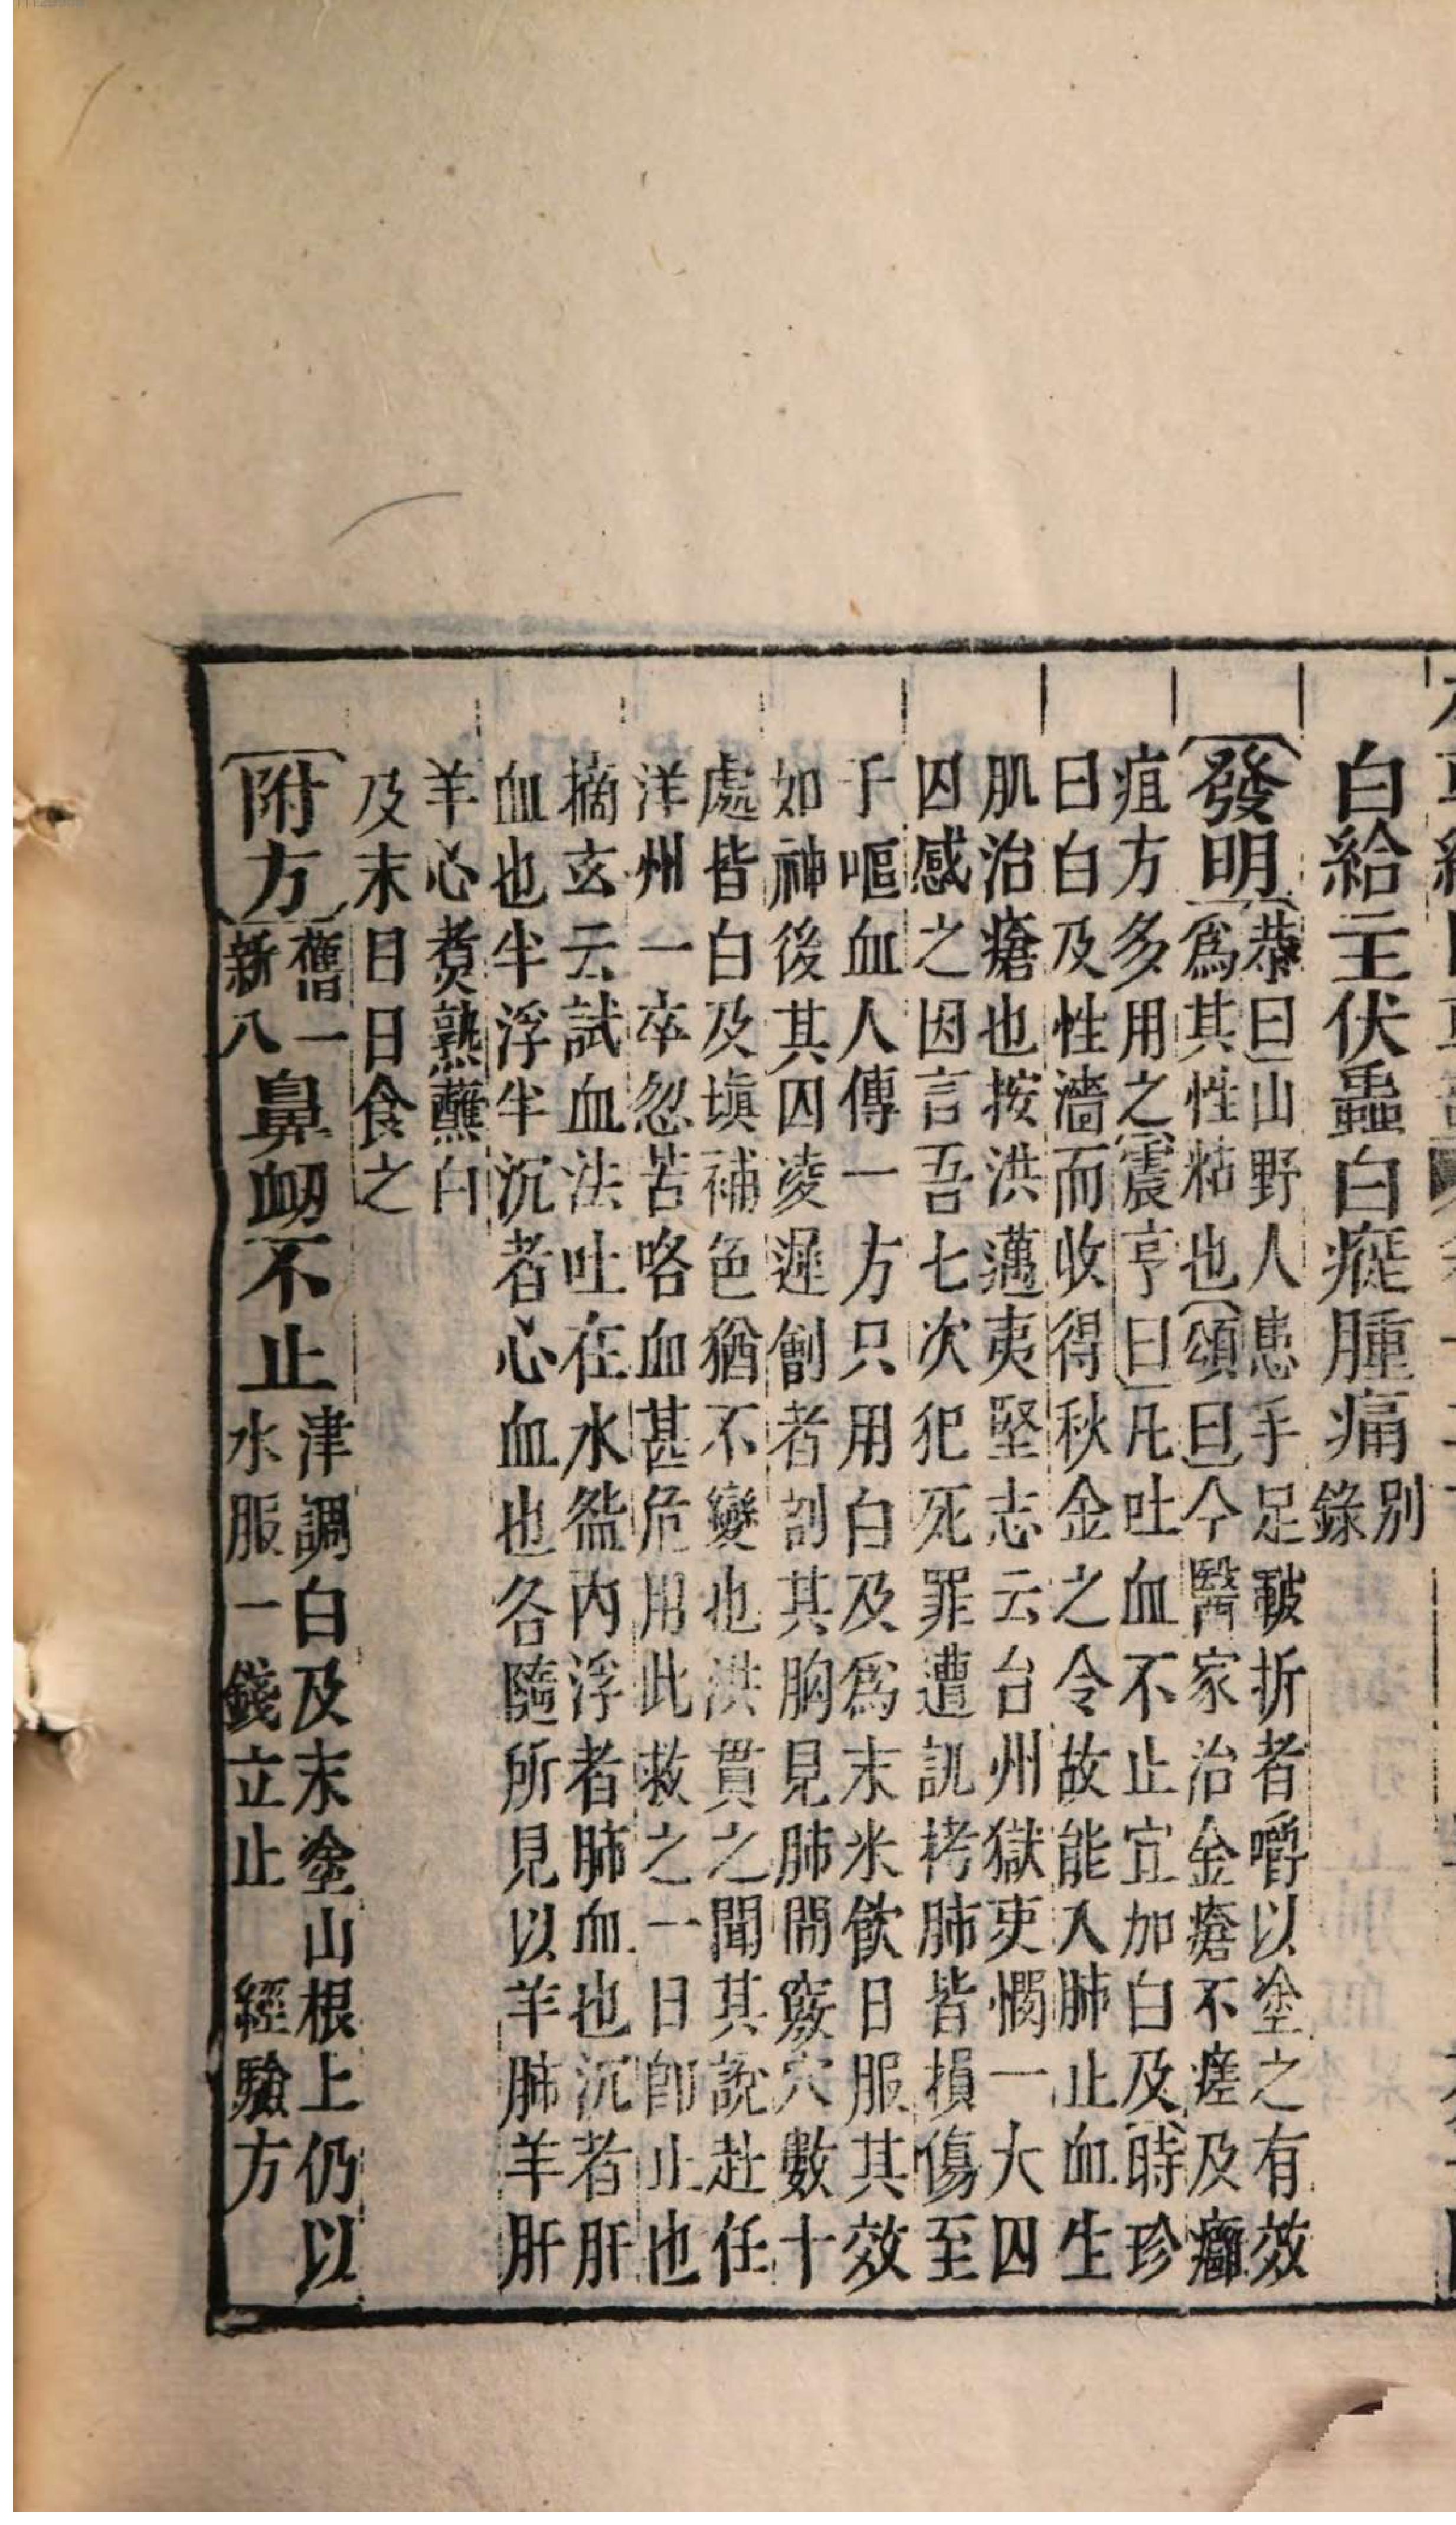 白給主伏蟲白癬腫痛別錄
發明恭曰山野人患手足皸折者嚼以塗之有效
爲其性粘也頌曰今醫家治金瘡不瘥及癰
疽方多用之震亨曰凡吐血不止宜加白及時珍
曰白及性濇而收得秋金之令故能入肺止血生
肌治瘡也按洪邁夷堅志云台州獄吏憫一大囚
囚感之因言吾七次犯死罪遭訊拷肺皆損傷至
于嘔血人傳一方只用白及爲末米飲日服其效
如神後其囚凌遲劊者剖其胸見肺間竅穴數十
處皆白及塡補色猶不變也洪貫之聞其說赴任
洋州一卒忽苦咯血甚危用此救之一日卽止也
摘玄云試血法吐在水盌內浮者肺血也沉者肝
血也半浮半沉者心血也各隨所見以羊肺羊肝
羊心煮熟蘸白
及末日日食之
附方舊一
新八
鼻衂不止津調白及末塗山根上仍以
水服一錢立止 經驗方